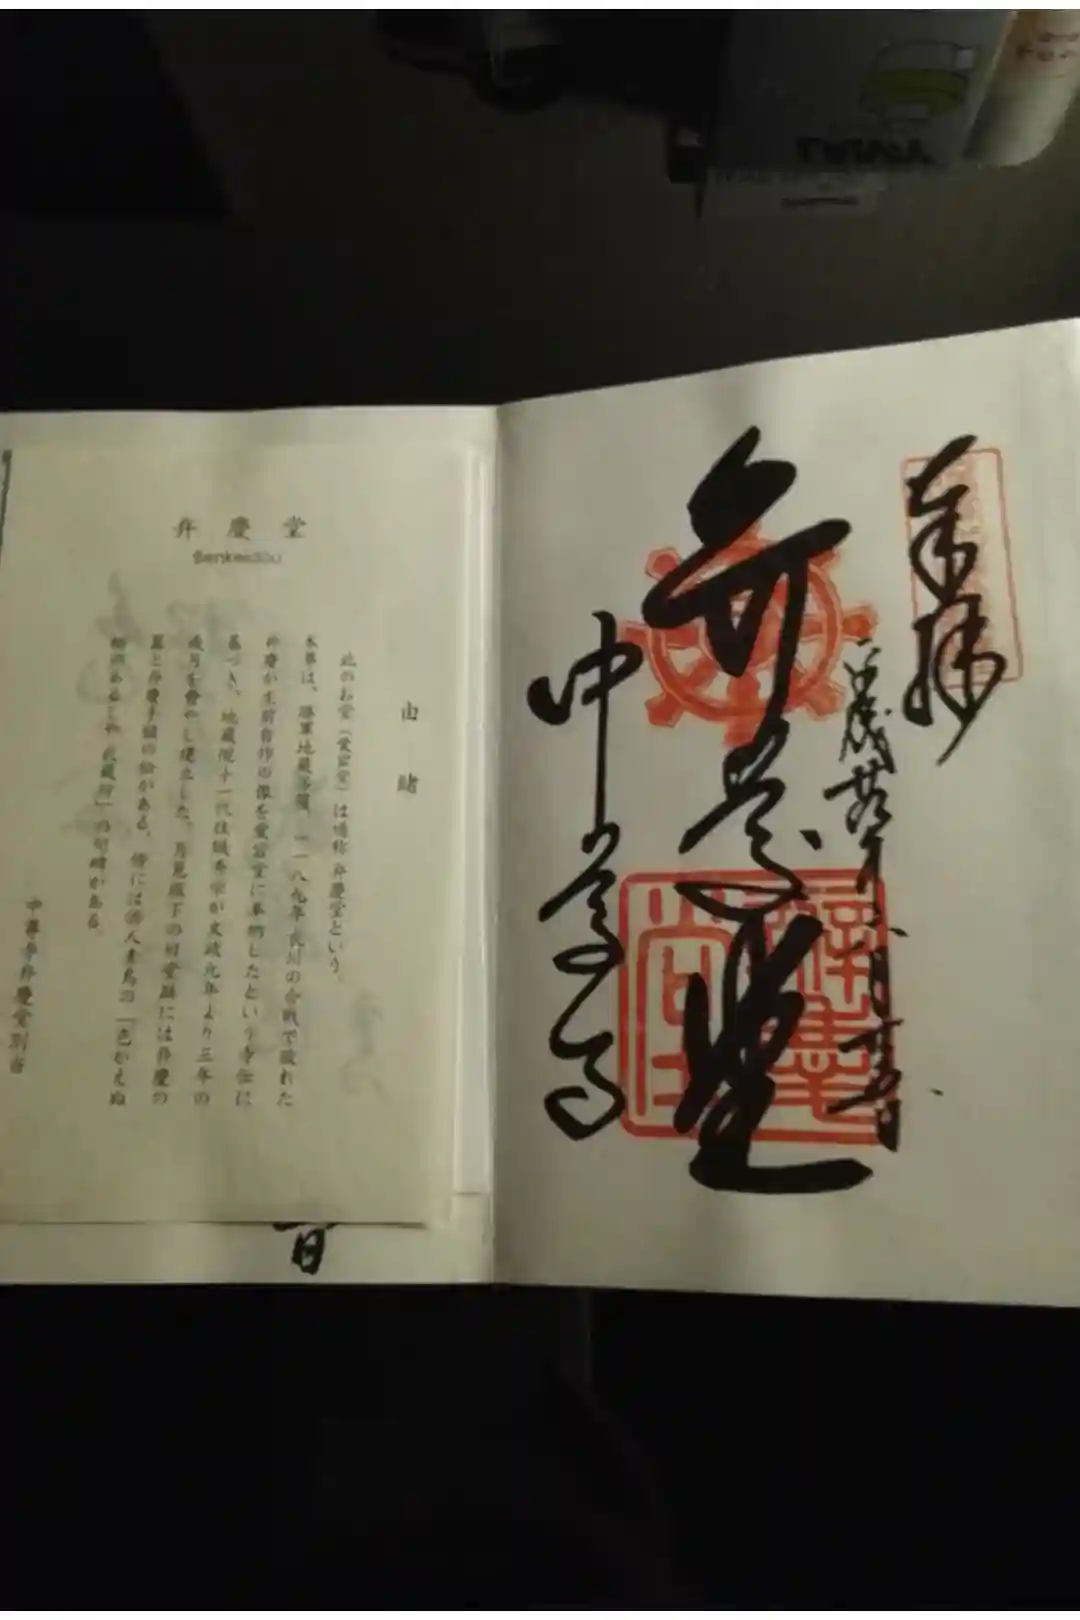 奉拝
弁慶堂
中尊寺
弁慶堂
Benkeidou
由緒
此のお堂(愛宕堂)は通称弁慶堂という。
本尊は、勝軍地蔵菩薩、一一八九年衣川の合戦で敗れた
弁慶が生前自作の像を愛宕堂に奉納したという寺伝に
基づき、地蔵院十一代住職秀栄が文政九年より三年の
歳月を費やし建立した。月見坂下の旧堂跡には弁慶の
墓と弁慶手植の松がある。傍には俳人素鳥の「色かえぬ
松のあるじや武蔵坊」の句碑がある。
中尊寺弁慶堂別当
日